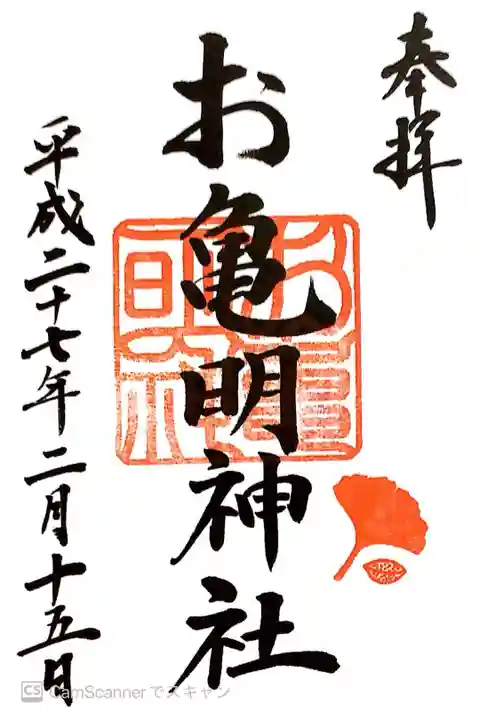 奉拝
お亀明神社
平成二十七年二月十五日
CS CamScannerでスキャン